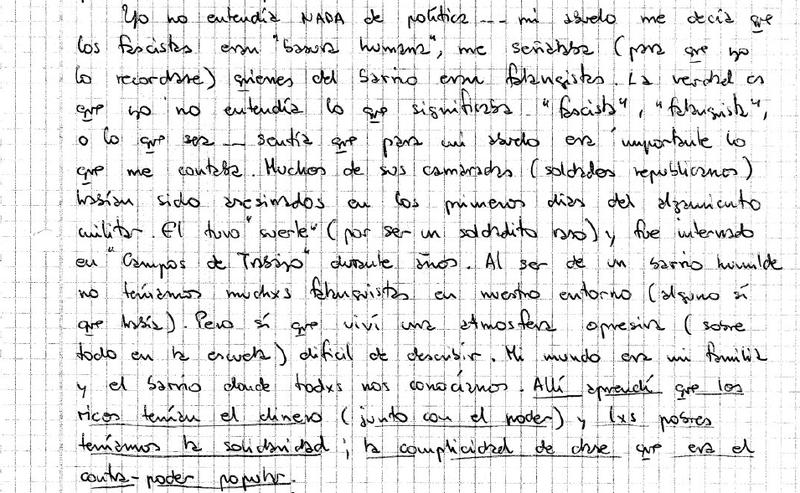 Yo no entendía NADA de política... mi abuelo me decía que
los fascistas eran "basura humana", me señalaba (para que yo
lo recordase) quienes del barrio eran falangistas. La verdad es
que yo no entendía lo que significaba "fascista", "falangista",
o lo que sea... sentía que para mi abuelo era importante lo
que me contaba. Muchos de sus camaradas (soldados republicanos)
habían sido asesinados en los primeros días del alzamiento
militar. Él tuvo "suerte" (por ser un soldadito raso) y fue internado
en "Campos de Trabajo" durante años. Al ser de un barrio humilde
no teníamos muchxs falangistas en nuestro entorno (alguno sí
que había). Pero sí que viví una atmosfera opresiva (sobre
todo en la escuela) dificil de describir. Mi mundo era mi familia
y el barrio donde todxs nos conocíamos. Allí aprendí que los
ricos tenían el dinero (junto con el poder) y lxs pobres
teníamos la solidaridad; la complicidad de clase que era el
contra-poder popular.